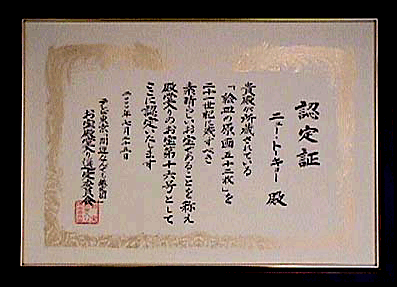 認定証
ニュートーキョー 殿
貴殿が所蔵されている
「絵皿の原画五十二枚」を
二十一世紀に残すべき
素晴らしいお宝であることを称え
殿堂入りお宝第十六号として
ここに認定いたします
テレビ東京「開運なんでも鑑定団」
お宝殿堂入り選定委員会